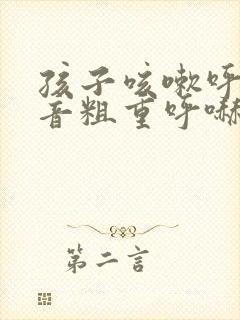 孩子咳嗽呼
音粗重呼嚇
第二言